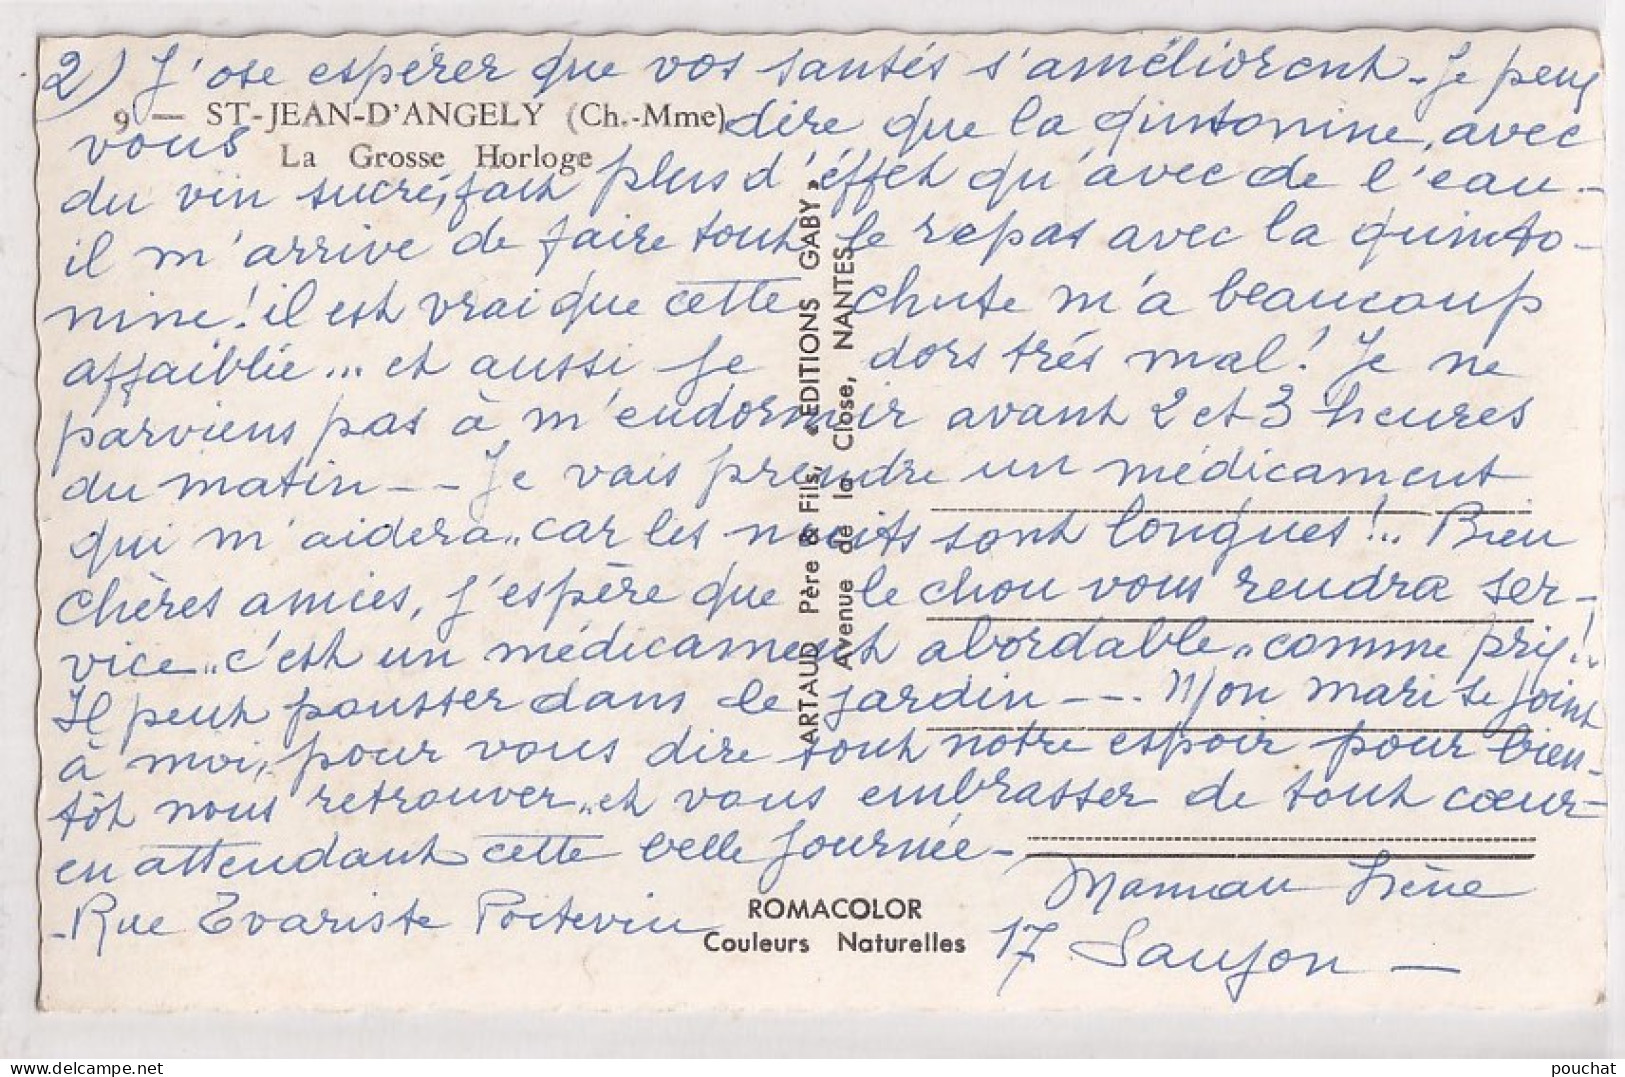 2) J'ose espérer que vos santés s'améliorent. Je peux
9 — ST-JEAN-D'ANGELY (Ch.-Mme)
vous dire que la quintonine, avec
La Grosse Horloge
du vin sucré, fait plus d'éffet qu'avec de l'eau.-
il m'arrive de faire tout le repas avec la quinto-
nine! il est vrai que cette chute m'a beaucoup
affaiblie... et aussi je dors très mal! Je ne
parviens pas à m'endormir avant 2 et 3 heures
du matin -- Je vais prendre un médicament
qui m'aidera.. car les nuits sont longues!.. Bien
chères amies, j'espère que le chou vous rendra ser-
vice.. c'est un médicament abordable.. comme prix!..
Il peut pousser dans le jardin --- Mon mari se joint
à moi, pour vous dire tout notre espoir pour bien-
tôt nous retrouver.. et vous embrasser de tout cœur-
en attendant cette belle journée -
Maman Irène
- Rue Evariste Poitevin
17 Saujon —
ARTAUD Père & Fils, « EDITIONS GABY »
Avenue de la Close, NANTES
ROMACOLOR
Couleurs Naturelles
delcampe.net
pouchat